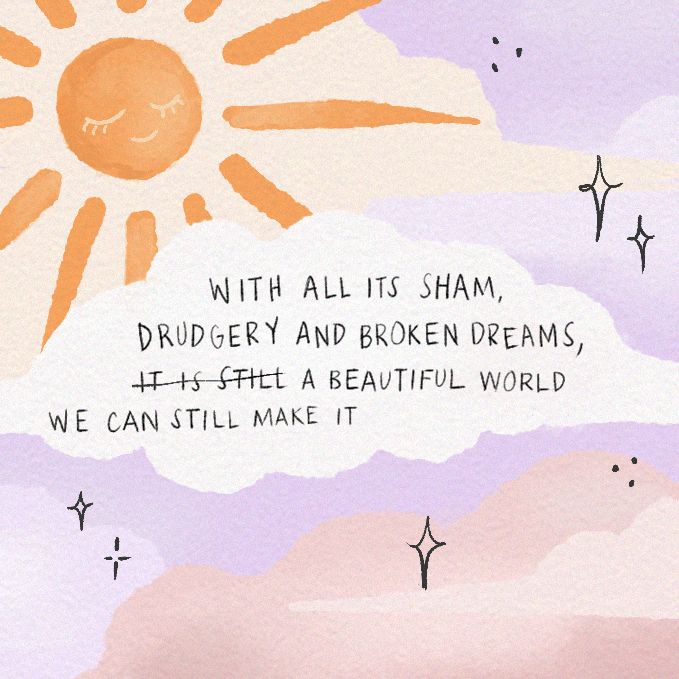 WITH ALL ITS SHAM,
DRUDGERY AND BROKEN DREAMS,
IT IS STILL A BEAUTIFUL WORLD
WE CAN STILL MAKE IT